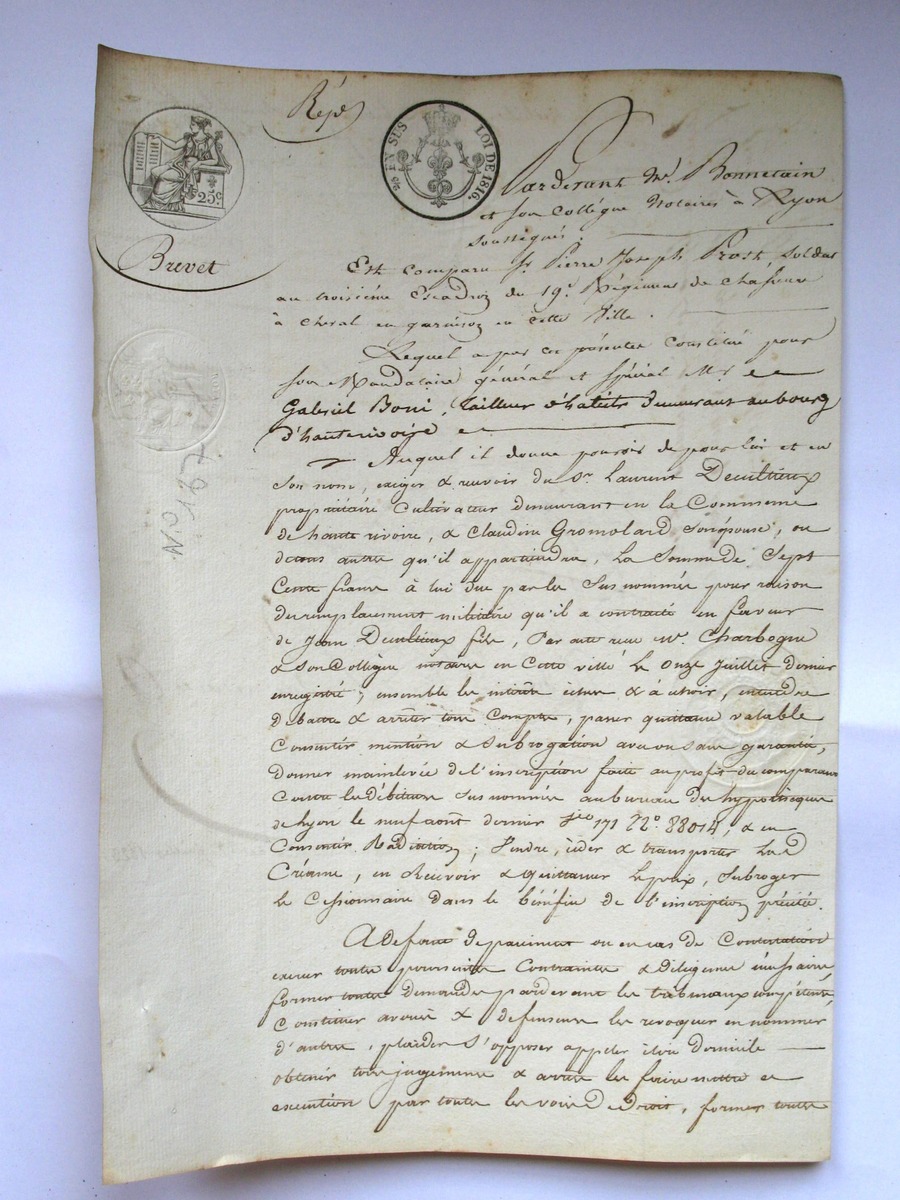 Répé
25c
EN SUS LOI DE 1816.
Brevet
No 167
Pardevant Me. Bonnetain
et son Collègue Notaires à Lyon
soussignés.
Est comparu Sr. Pierre Joseph Prost, soldat
au troisième Escadron du 19e. Régiment de Chasseurs
à Cheval en garnison en cette Ville.
Lequel a par ces présentes Constitué pour
son Mandataire général et spécial Mr
Gabriel Boni, tailleur d'habits demeurant au bourg
d'hauterivoire
Auquel il donne pouvoir de pour lui et en
son nom, exiger & recevoir du Sr. Laurent Decultieux
propriétaire Cultivateur demeurant en la Commune
de hauterivoire, & Claudine Gromolard son épouse, ou
de tous autres qu'il appartiendra, la Somme de Sept
Cents francs à lui due par les susnommés pour raison
du remplacement militaire qu'il a contracté en faveur
de Jean Decultieux fils, Par acte reçu Me. Charbogne
& son Collègue notaires en Cette ville le onze juillet dernier
enregistré; ensemble les intérêts échus & à échoir, entendre
débattre & arrêter tous Comptes, passer quittance valable
Consentir mention & subrogation avec ou sans garantie,
donner mainlevée de l'inscription faite au profit du comparant
Contre les débiteurs susnommés au bureau des hypothèques
de Lyon le neuf août dernier 171 No. 88014, & en
Consentir Radiation; Vendre, céder & transporter lad
Créance, en Recevoir & Quittancer le prix, subroger
le Cessionnaire dans le bénéfice de l'inscription précitée.
A défaut de paiement ou en cas de Contestation
exercer toutes poursuites Contraintes & Diligences nécessaires,
former toutes demandes pardevant les tribunaux compétents,
Constituer avoués & défenseurs les révoquer en nommer
d'autres, plaider s'opposer appeler élire domicile
obtenir tous jugements & arrêts les faire mettre à
exécution par toutes les voies de Droit, former toutes